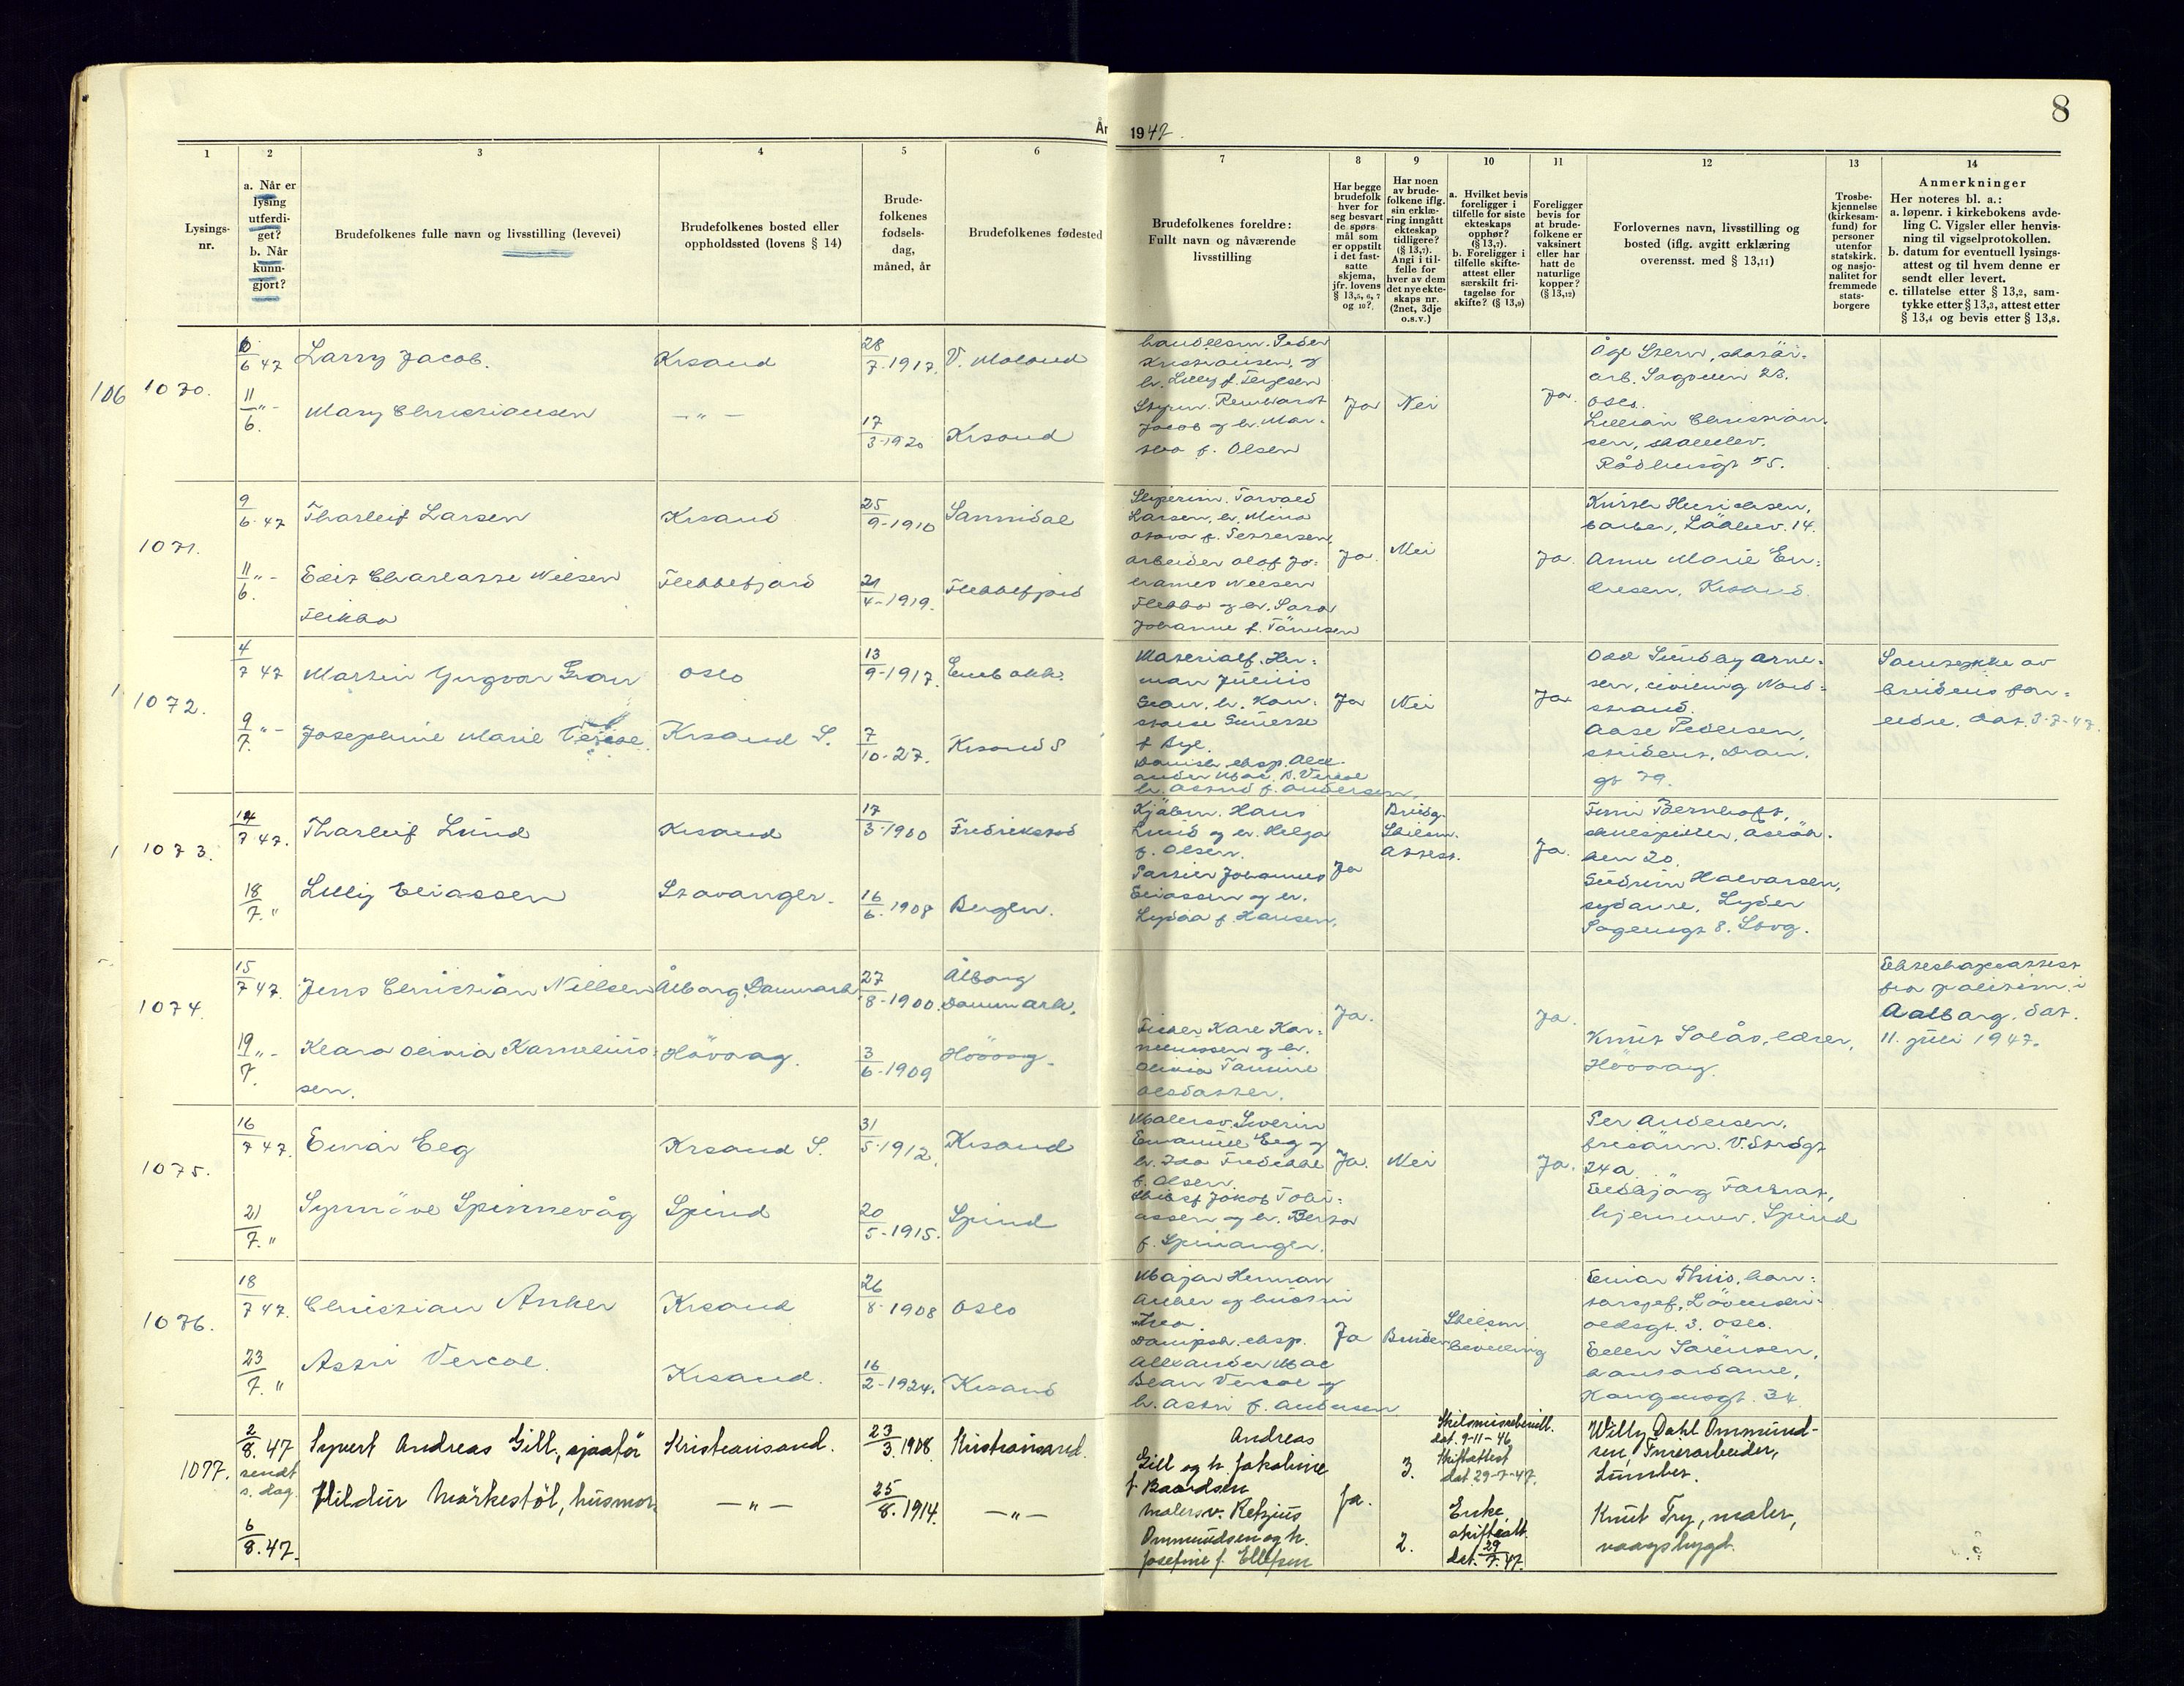 8
År 1947.
1
2
3
4
5
6
7
8
9
10
11
12
13
14
Lysings-
nr.
a. Når er
lysing
utferdi-
get?
b. Når
kunn-
gjort?
Brudefolkenes fulle navn og livsstilling (levevei)
Brudefolkenes bosted eller
oppholdssted (lovens § 14)
Brude-
folkenes
fødsels-
dag,
måned, år
Brudefolkenes fødested
Brudefolkenes foreldre:
Fullt navn og nåværende
livsstilling
Har begge
brudefolk
hver for
seg besvart
de spørs-
mål som
er oppstilt
i det fast-
satte
skjema,
jfr. lovens
§ 13,5, 6, 7
og 10?
Har noen
av brude-
folkene iflg.
sin erklæ-
ring inngått
ekteskap
tidligere?
(§ 13,7).
Angi i til-
felle for
hver av dem
det nye ekte-
skaps nr.
(2net, 3dje
o.s.v.)
a. Hvilket bevis
foreligger i
tilfelle for siste
ekteskaps
opphør?
(§ 13,7).
b. Foreligger i
tilfelle skifte-
attest eller
særskilt fri-
tagelse for
skifte? (§ 13,9)
Foreligger
bevis for
at brude-
folkene er
vaksinert
eller har
hatt de
naturlige
kopper?
(§ 13,12)
Forlovernes navn, livsstilling og
bosted (iflg. avgitt erklæring
overensst. med § 13,11)
Trosbe-
kjennelse
(kirkesam-
fund) for
personer
utenfor
statskirk.
og nasjo-
nalitet for
fremmede
stats-
borgere
Anmerkninger
Her noteres bl. a.:
a. løpenr. i kirkebokens avde-
ling C. Vigsler eller henvis-
ning til vigselprotokollen.
b. datum for eventuell lysings-
attest og til hvem denne er
sendt eller levert.
c. tillatelse etter § 13,2, sam-
tykke etter § 13,3, attest etter
§ 13,4 og bevis etter § 13,8.
106 1070.
6/6 47
Larry Jacob.
Krsand
28/7-1917.
V. Moland
11/6. "-
Mary Christiansen
-"-
17/3-1920
Krsand
Peder
Kristiansen, og
h. Lilly f. Terjesen
Styrm. Reinhardt
Jacob og h. Mar-
tha f. Olsen
Ja
Nei
Ja.
Åge Stern,
arb. Sagveien 23.
Oslo.
Lillian Christian-
sen,
Rådhusgt 55.
1071.
9/6 47
Tharleif Larsen
Krsand
25/9-1910
Sannidal
11/6. "-
Edit Charlotte Nielsen
Flekkefjord
21/4-1919.
Flekkefjord
Flikka
Larsen, h. Mina
f. Pettersen,
Arbeider Olof Jo-
hannes Nielsen
Flikka og h. Sara
Johanne f. Tönnesen
Ja.
Nei
Ja.
Henrichsen,
14.
Anne Marie
Krsand.
1072.
4/7 47
Martin Yngvar Gran
Oslo
13/9-1917.
9/7. "-
Josephine Marie Vercoe.
Krsand S.
7/10-27.
Krsand S
Materialf. Her-
man Julius
Gran, h.
f. Bye.
Dampsk. eksp. Alex-
ander Mac. B. Vercoe
h. Astrid f. Andersen.
Ja
Nei
Ja
Odd Sundby Arne-
sen, siviling. Nord-
strand.
Aase Pedersen,
student, Dron.
gt 79.
Samtykke av
brudens for-
eldre, dat. 3-7-47.
1073.
14/7 47.
Tharleif Lund
Krsand
17/3-1900
Fredrikstad
18/7. "
Lilly Eliassen
Stavanger.
16/6. 1908
Bergen.
Kjøbm. Hans
Lund og h. Helga
f. Olsen.
Johannes
Eliassen og h.
Lydia f. Hansen.
Ja
Brudg.
Skilsm.
attest.
Ja.
Bernhoft,
skuespiller,
20.
Gudrun Halvorsen,
sydame, Lyder
Sagensgt 8. Stvg.
1074.
15/7 47.
Jens Christian Nielsen
Ålborg, Danmark
27/8-1900.
Ålborg
Danmark.
19/7. "-
Klara Olivia Kornelius-
sen.
Hövåg.
3/6-1909
Hövåg.
Fisker Kare Kor-
neliussen og h.
Olivia Tomine
Olsdatter.
Ja.
Ja.
Knut Solås, lærer,
Hövåg.
Ekteskapsattest
fra politim. i
Aalborg. dat.
11. juli 1947.
1075.
16/7 47.
Einar Eeg
Krsand S.
31/5-1912.
Krsand
21/7. "
Synnöve Spinnevåg
Spind
20/5-1915.
Spind
Malersv. Severin
Emanuel Eeg og
h. Ida Fredrikke
f. Olsen.
Jakob Tobi-
assen og h. Berta
f. Spinanger.
Ja.
Nei
Ja.
Per Andersen,
V. Strdgt
24a
Eldbjörg
hjemmev. Spind
1076.
18/7 47.
Christian Anker
Krsand
26/8-1908
Oslo
23/7. "
Astri Vercoe.
Krsand.
16/2-1924.
Krsand
Major Herman
Anker og hustru
Thea.
Dampsk. eksp.
Alexander Mac
Bean Vercoe og
h. Astri f. Andersen
Ja
Skilsm.
bevilling
Einar Thiis, kon-
torsjef, Lövenski-
oldsgt. 3. Oslo.
Ellen Sörensen,
kontordame,
Kongensgt. 34
1077.
2/8. 47
sendt
s. dag.
Syvert Andreas Gill, sjaafør
Kristiansand.
23/3 1908.
Kristiansand.
Hildur Mörkestöl, husmor
-"-
25/8. 1914.
-"-
6/8. 47.
Andreas
Gill og h. Jakobine
f. Baardsen
malersv. Retzius
Ommundsen og h.
Josefine f. Ellefsen
Ja.
3.
2.
Skilsmissebevill.
dat. 9-11-46
Skifteattest
dat 29-7-47.
Enke
skifteatt.
dat. 29/7. 47.
Willy Dahl Ommund-
sen,
Knut Try, maler,
vaagsbygd.